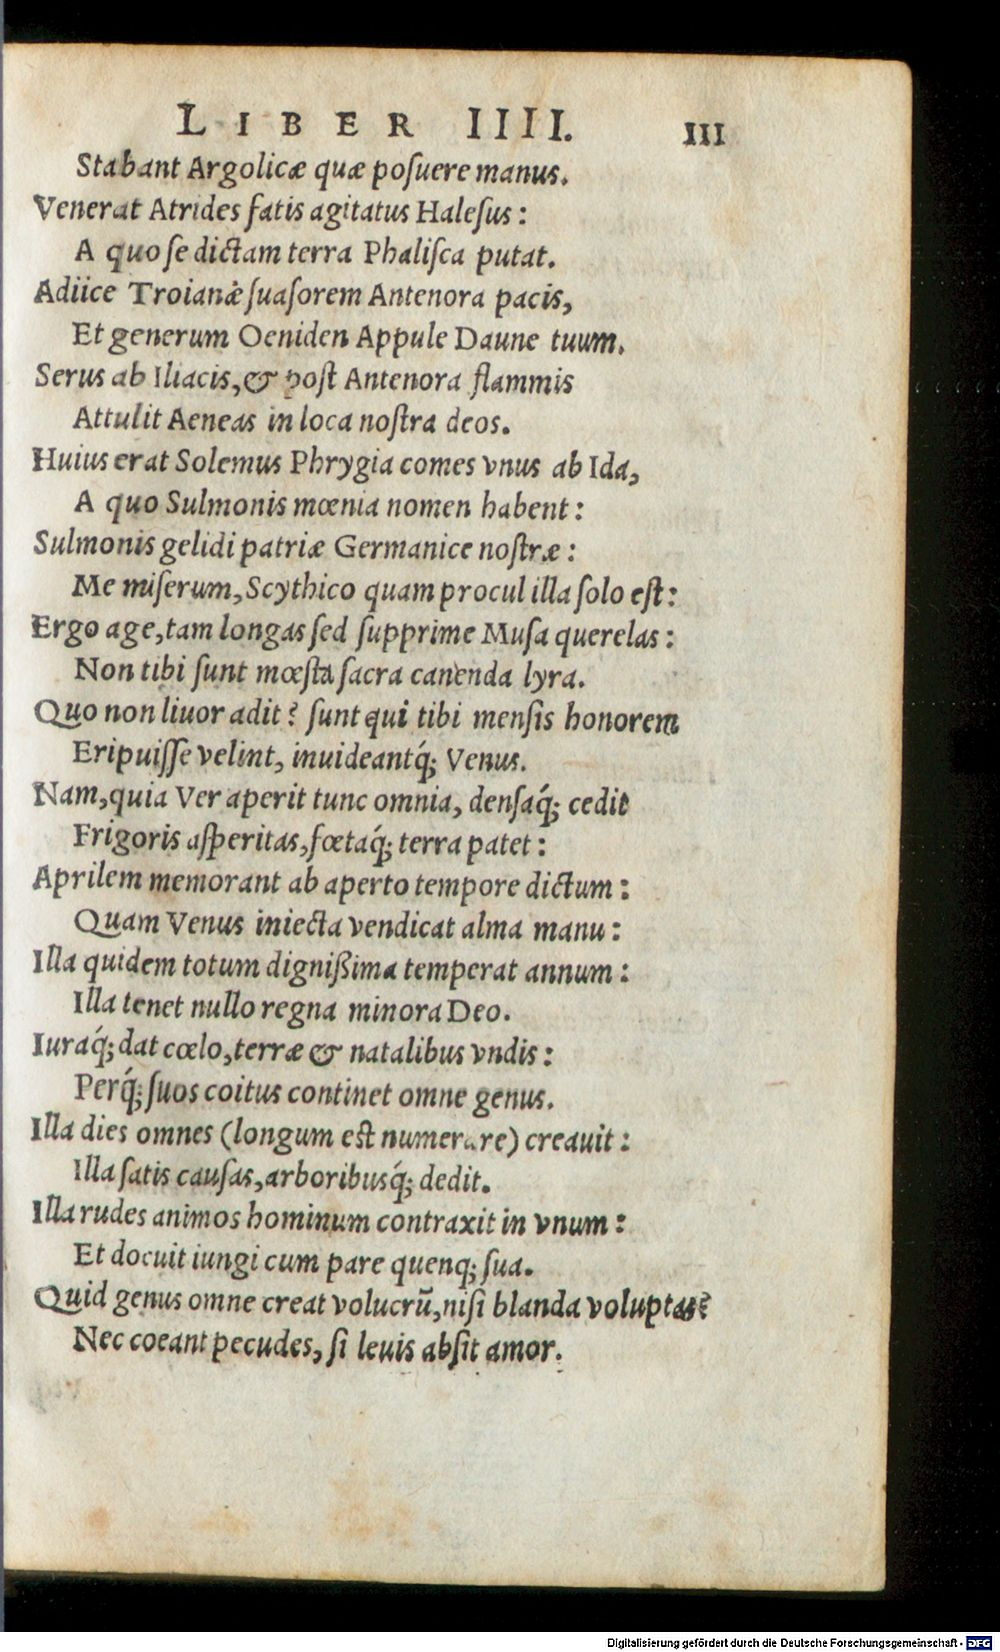 LIBER IIII. III
Stabant Argolicæ quæ poſuere manus.
Venerat Atrides fatis agitatus Haleſus:
A quo ſe dictam terra Phaliſca putat.
Adiice Troianæ ſuaſorem Antenora pacis,
Et generum Oeniden Appule Daune tuum.
Serus ab Iliacis, & post Antenora flammis
Attulit Aeneas in loca noſtra deos.
Huius erat Solemus Phrygia comes vnus ab Ida,
A quo Sulmonis mœnia nomen habent:
Sulmonis gelidi patriæ Germanice noſtræ:
Me miſerum, Scythico quam procul illa ſolo eſt:
Ergo age, tam longas ſed ſupprime Muſa querelas:
Non tibi ſunt mœſta ſacra canenda lyra.
Quo non liuor adit? ſunt qui tibi menſis honorem
Eripuiſſe velint, inuideantq́; Venus.
Nam, quia Ver aperit tunc omnia, denſaq́; cedit
Frigoris aſperitas, fœtaq́; terra patet:
Aprilem memorant ab aperto tempore dictum:
Quam Venus iniecta vendicat alma manu:
Illa quidem totum digniſſima temperat annum:
Illa tenet nullo regna minora Deo.
Iuraq́; dat cœlo, terræ & natalibus vndis:
Perq́; ſuos coitus continet omne genus.
Illa dies omnes (longum eſt numerare) creauit:
Illa ſatis cauſas, arboribusq́; dedit.
Illa rudes animos hominum contraxit in vnum:
Et docuit iungi cum pare quenq; ſua.
Quid genus omne creat volucrū, niſi blanda voluptas?
Nec coeant pecudes, ſi leuis abſit amor.
Digitalisierung gefördert durch die Deutsche Forschungsgemeinschaft - DFG